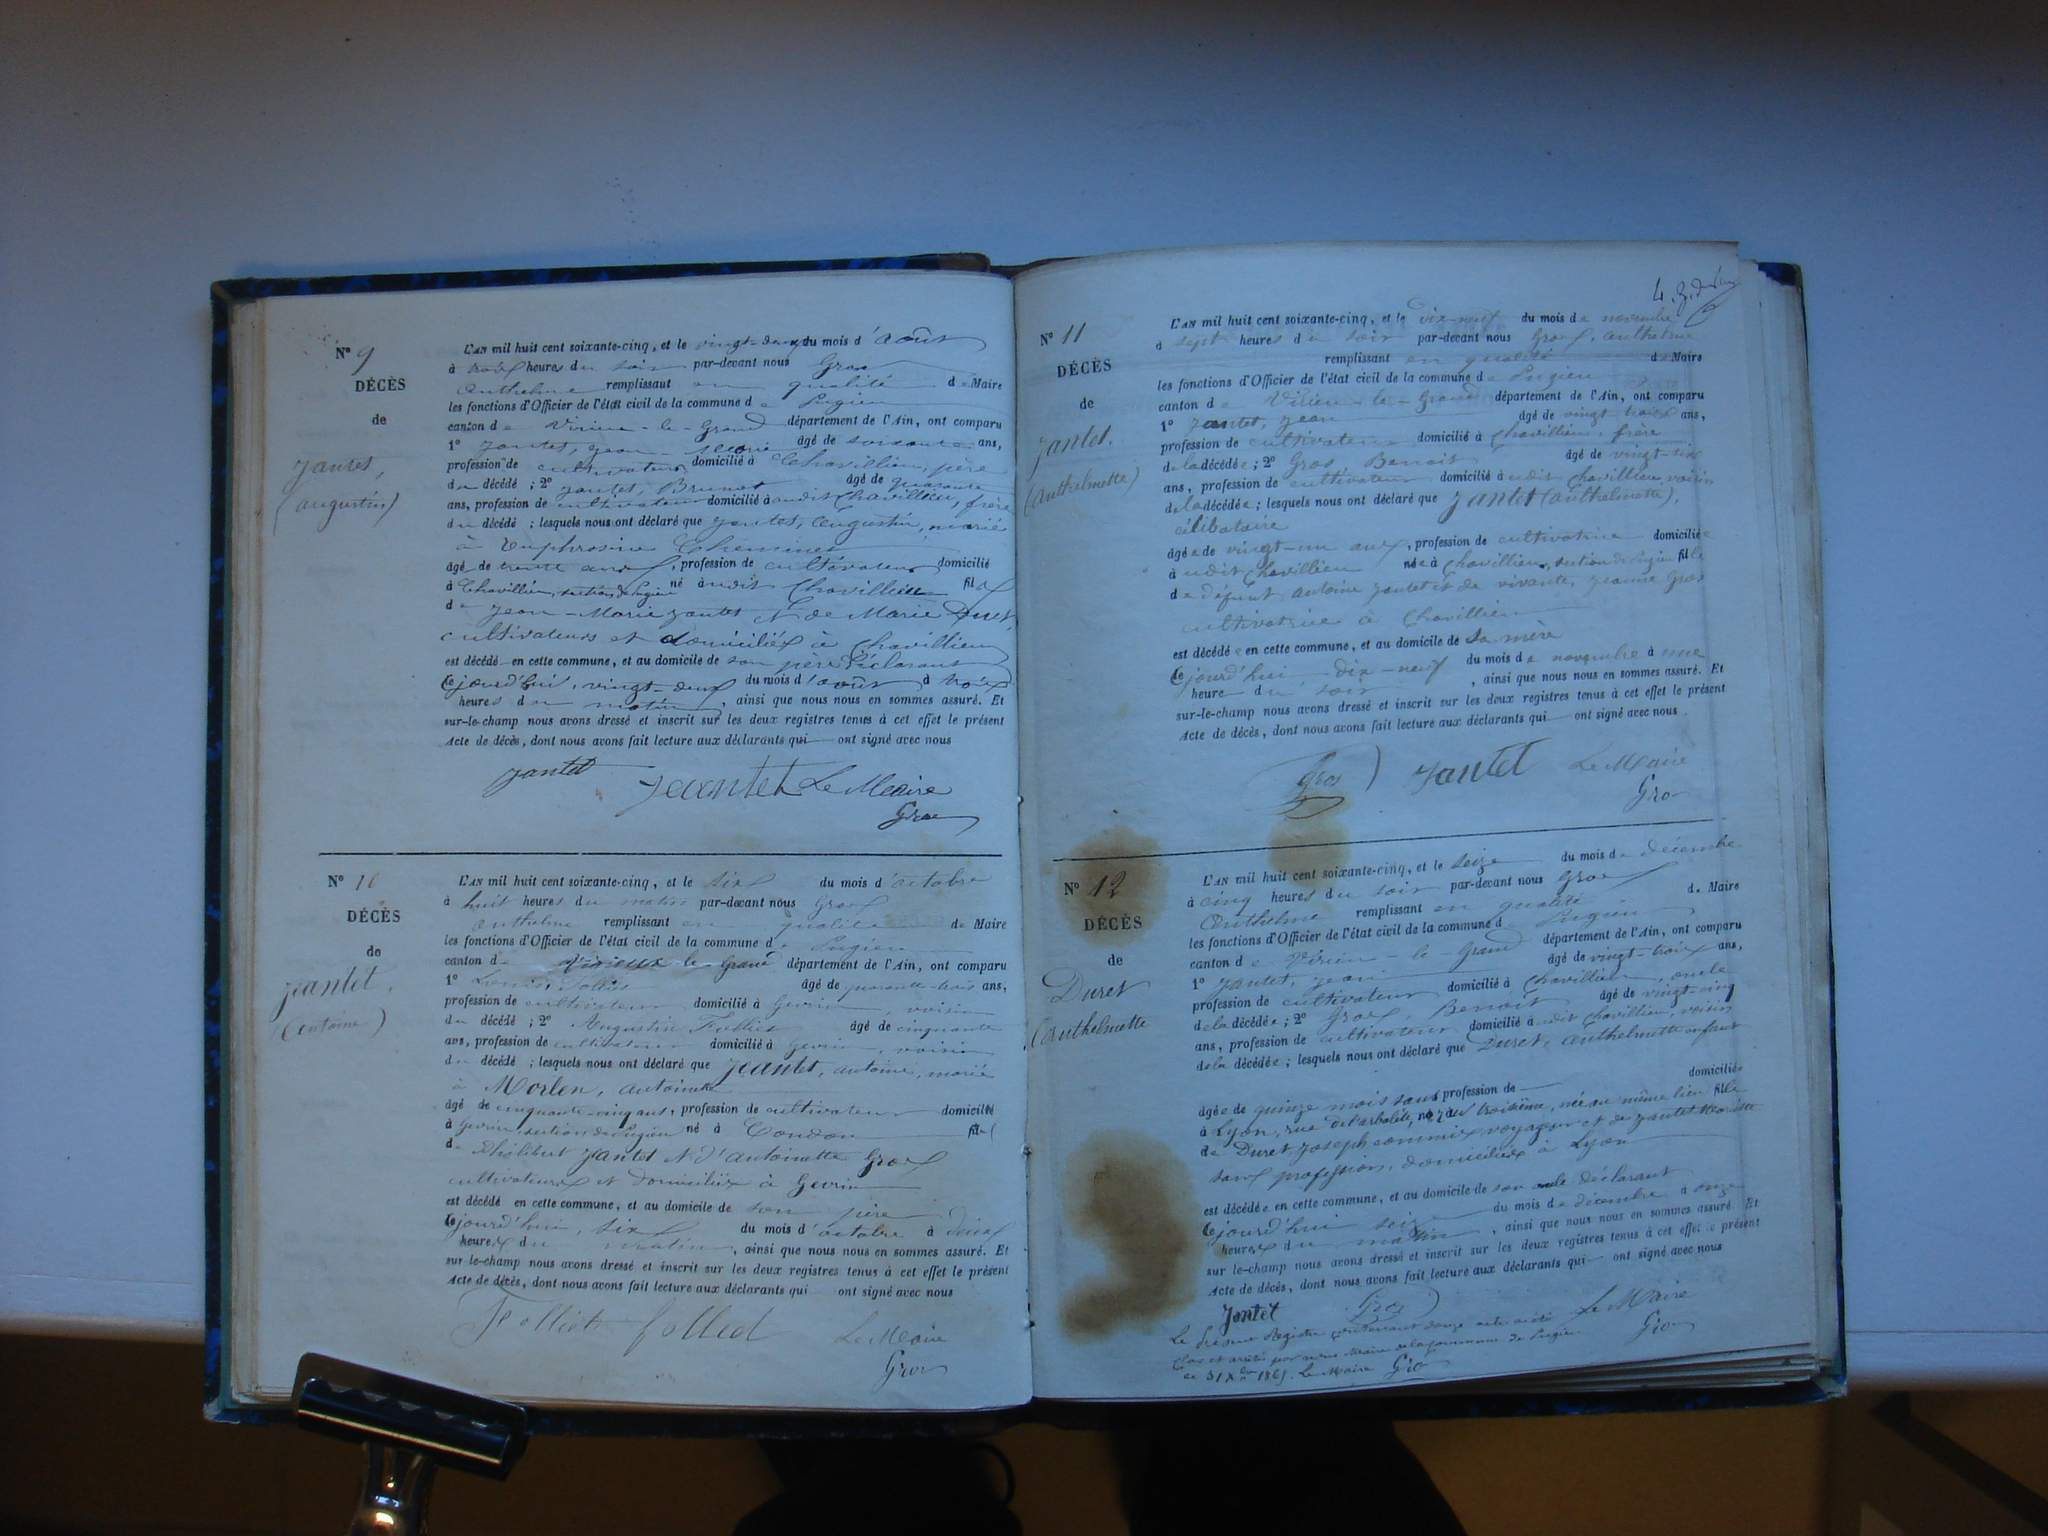 N° 9
DÉCÈS
de
Jantet,
(augustin)
L'AN mil huit cent soixante-cinq, et le vingt-deux du mois d'août
à trois heures du soir par-devant nous Gros
Anthelme remplissant en qualité de Maire
les fonctions d'Officier de l'état civil de la commune de Pugieu
canton de Virieu-le-Grand département de l'Ain, ont comparu
1° Jantet, Jean-Marie âgé de soixante ans,
profession de cultivateur domicilié à Chavillieu, père
du décédé ; 2° Jantet, Brunet âgé de quarante
ans, profession de cultivateur domicilié à audit Chavillieu, frère
du décédé ; lesquels nous ont déclaré que Jantet, Augustin, marié
à Euphrosine Cheminet
âgé de trente ans, profession de cultivateur domicilié
à Chavillieu, section de Pugieu né à udit Chavillieu fils
de Jean-Marie Jantet & de Marie Duret,
cultivateurs et domiciliés à Chavillieu
est décédé en cette commune, et au domicile de son père déclarant
Cejourd'hui, vingt-deux du mois d'août à trois
heures du matin, ainsi que nous nous en sommes assuré. Et
sur-le-champ nous avons dressé et inscrit sur les deux registres tenus à cet effet le présent
Acte de décès, dont nous avons fait lecture aux déclarants qui ont signé avec nous
Jantet Jeantet Le Maire
Gros
N° 10
DÉCÈS
de
Jeantet,
(antoine)
L'AN mil huit cent soixante-cinq, et le six du mois d'octobre
à huit heures du matin par-devant nous Gros
Anthelme remplissant en qualité de Maire
les fonctions d'Officier de l'état civil de la commune de Pugieu
canton de Virieux le Grand département de l'Ain, ont comparu
1° Louis, Follict âgé de quarante-trois ans,
profession de cultivateur domicilié à Gevrin, voisin
du décédé ; 2° Augustin Folliet âgé de cinquante
ans, profession de cultivateur domicilié à Gevrin, voisin
du décédé ; lesquels nous ont déclaré que Jeantet, antoine, marié
à Morlen, antoinette
âgé de cinquante-cinq ans, profession de cultivateur domicilié
à Gevrin, section de Pugieu né à Condon fils
de Philibert Jantet & d'antoinette Gros
cultivateurs et domiciliés à Gevrin
est décédé en cette commune, et au domicile de son père
Cejourd'hui, six du mois d'octobre à deux
heures du matin, ainsi que nous nous en sommes assuré. Et
sur-le-champ nous avons dressé et inscrit sur les deux registres tenus à cet effet le présent
Acte de décès, dont nous avons fait lecture aux déclarants qui ont signé avec nous
Folliet follied Le Maire
Gros
4.
N° 11
DÉCÈS
de
Jantet.
(Anthelmette)
L'AN mil huit cent soixante-cinq, et le dix-neuf du mois de novembre
à sept heures du soir par-devant nous Gros, anthelme
remplissant en qualité de Maire
les fonctions d'Officier de l'état civil de la commune de Pugieu
canton de Virieu-le-Grand département de l'Ain, ont comparu
1° Jantet, Jean âgé de vingt-trois ans,
profession de cultivateur domicilié à Chavillieu, frère
de la décédée ; 2° Gros Benoit âgé de vingt-six
ans, profession de cultivateur domicilié à udit Chavillieu, voisin
de la décédée ; lesquels nous ont déclaré que Jantet (anthelmette),
célibataire
âgée de vingt-un ans, profession de cultivatrice domiciliée
à udit Chavillieu née à Chavillieu, section de Pugieu fille
de défunt antoine Jantet et de vivante, Jeanne Gros
cultivatrice à Chavillieu
est décédée en cette commune, et au domicile de sa mère
Cejourd'hui dix-neuf du mois de novembre à une
heure du soir, ainsi que nous nous en sommes assuré. Et
sur-le-champ nous avons dressé et inscrit sur les deux registres tenus à cet effet le présent
Acte de décès, dont nous avons fait lecture aux déclarants qui ont signé avec nous
Gros Jantet Le Maire
Gros
N° 12
DÉCÈS
de
Duret
(anthelmette
L'AN mil huit cent soixante-cinq, et le seize du mois de décembre
à cinq heures du soir par-devant nous Gros
Anthelme remplissant en qualité de Maire
les fonctions d'Officier de l'état civil de la commune de Pugieu
canton de Virieu-le-Grand département de l'Ain, ont comparu
1° Jantet, Jean âgé de vingt-trois ans,
profession de cultivateur domicilié à Chavillieu, oncle
de la décédée ; 2° Gros, Benoit âgé de vingt-cinq
ans, profession de cultivateur domicilié à udit Chavillieu, voisin
de la décédée ; lesquels nous ont déclaré que Duret, anthelmette enfant
âgée de quinze mois sans profession de domiciliée
à Lyon, rue de l'arbalète, au troisième, née au même lieu fille
de Duret Joseph commis voyageur et de Jantet Mariette
sans profession, domiciliés à Lyon
est décédée en cette commune, et au domicile de son oncle déclarant
Cejourd'hui seize du mois de décembre à onze
heures du matin, ainsi que nous nous en sommes assuré. Et
sur-le-champ nous avons dressé et inscrit sur les deux registres tenus à cet effet le présent
Acte de décès, dont nous avons fait lecture aux déclarants qui ont signé avec nous
Jantet Gros Le Maire
Gros
Le présent Registre contenant douze actes a été
clos et arrêté par nous Maire de la commune de Pugieu
ce 31 Xbre 1865. Le Maire Gros